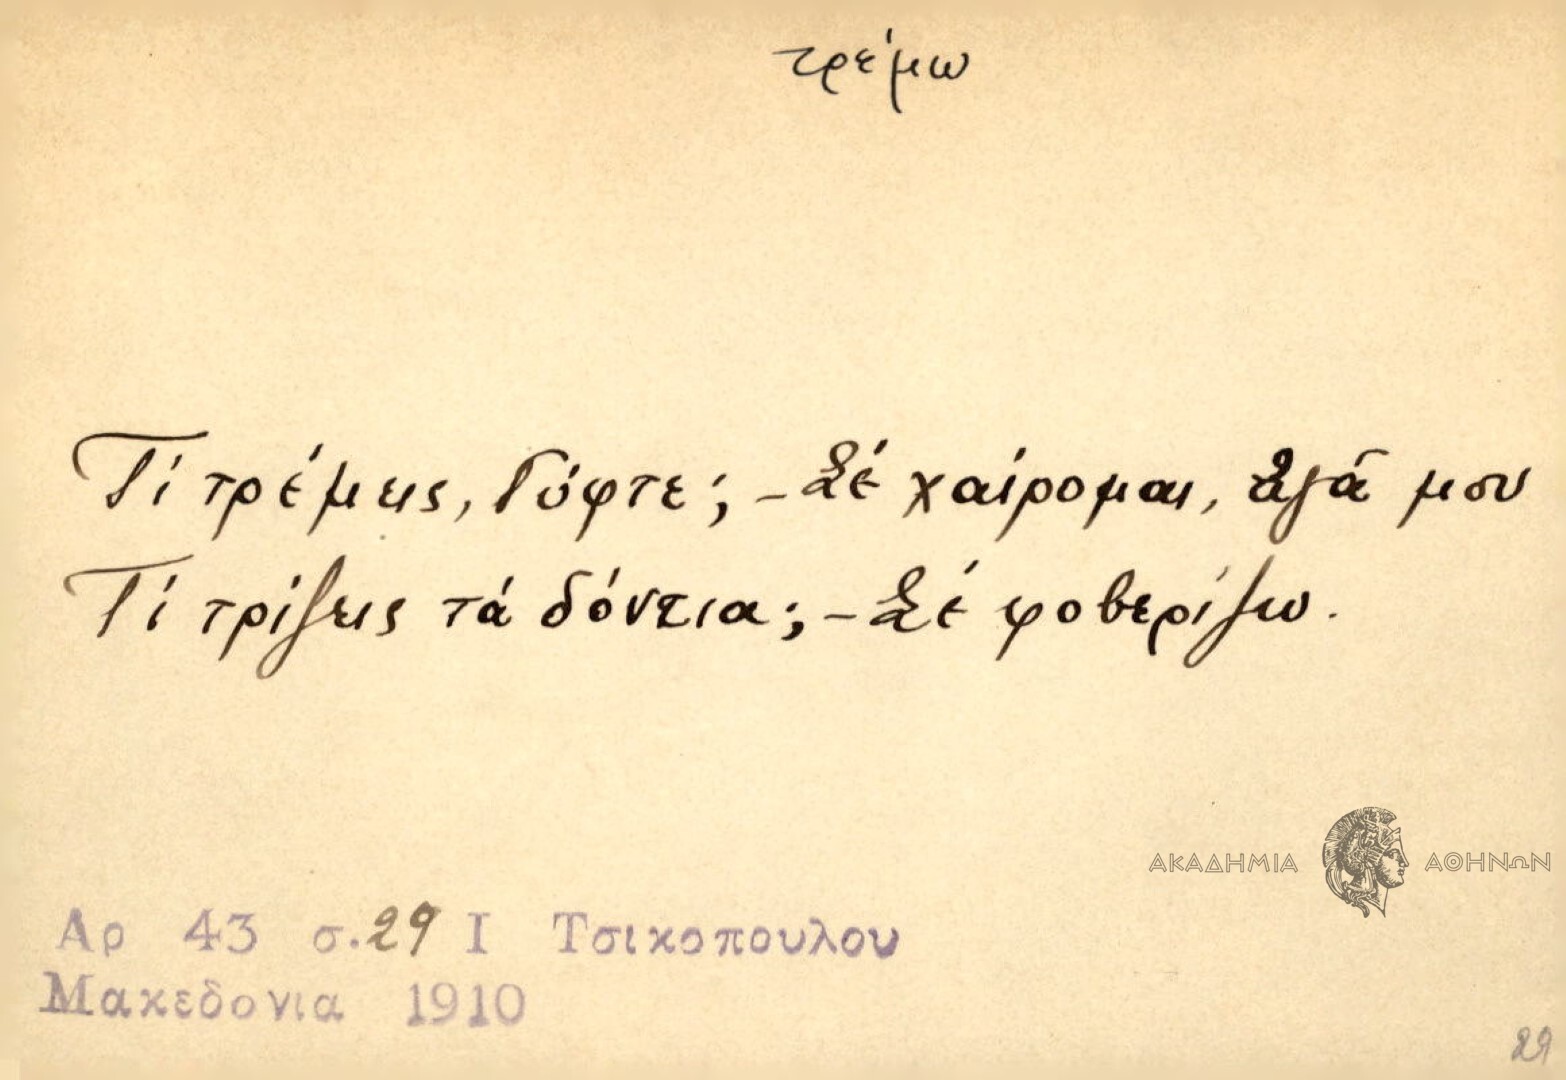 τρέμω
Τί τρέμεις, Γύφτε; - Σέ χαίρομαι, ἀγᾶ μου
Τί τρίζεις τά δόντια; - Σέ φοβερίζω.
ΑΚΑΔΗΜΙΑ ΑΘΗΝΩΝ
Αρ 43 σ. 29 Ι Τσικοπουλου
Μακεδονια 1910
29